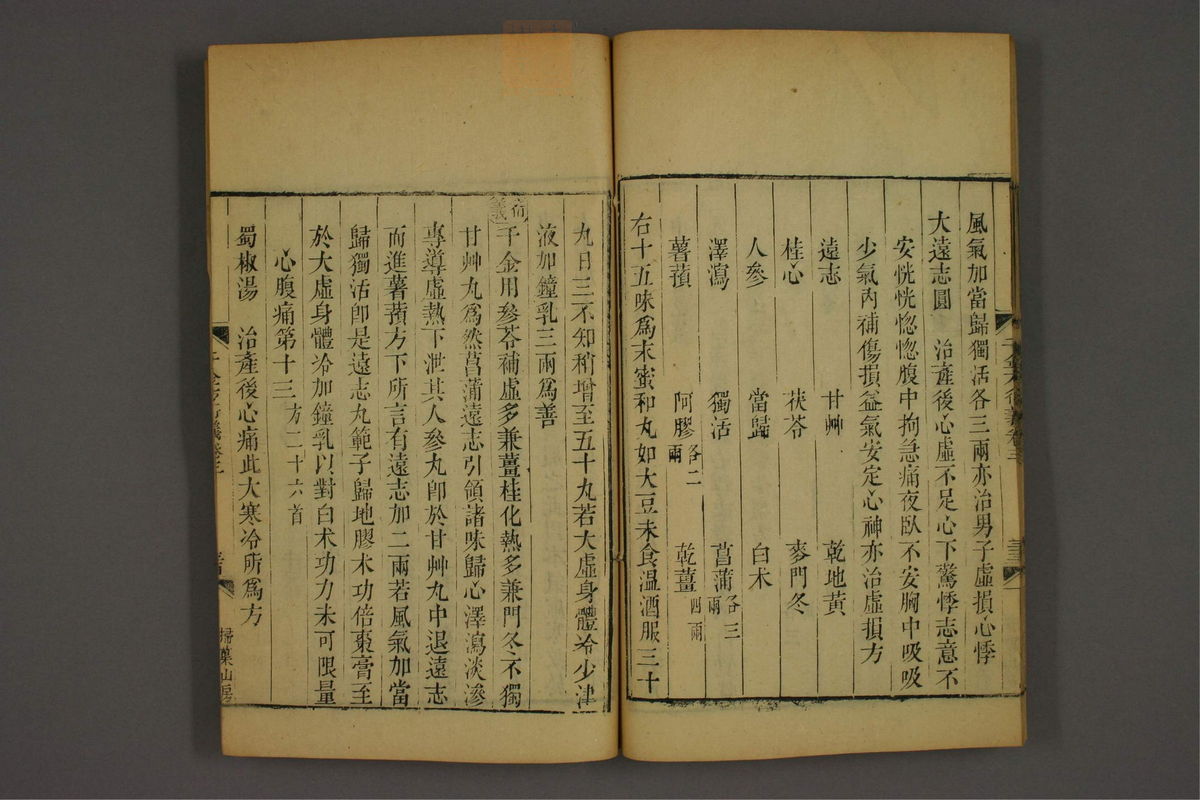 風氣加當歸獨活各三兩亦治男子虛損心悸
大遠志圓 治產後心虛不足心下驚悸志意不
安恍恍惚惚腹中拘急痛夜臥不安胸中吸吸
少氣內補傷損益氣安定心神亦治虛損方
遠志 甘艸 乾地黃
桂心 茯苓 麥門冬
人參 當歸 白朮
澤瀉 獨活 菖蒲各三兩
薯蕷 阿膠各二兩 乾薑四兩
右十五味爲末蜜和丸如大豆未食溫酒服三十
丸日三不知稍增至五十丸若大虛身體冷少津
液加鐘乳三兩爲善
衍義
千金用參苓補虛多兼薑桂化熱多兼門冬不獨
甘艸丸爲然菖蒲遠志引領諸味歸心澤瀉淡滲
專導虛熱下泄其人參丸卽於甘艸丸中退遠志
而進薯蕷方下所言有遠志加二兩若風氣加當
歸獨活卽是遠志丸範子歸地膠朮功倍棗膏至
於大虛身體冷加鐘乳以對白朮功力未可限量
心腹痛第十三 方二十六首
蜀椒湯 治產後心痛此大寒冷所爲方
掃葉山房